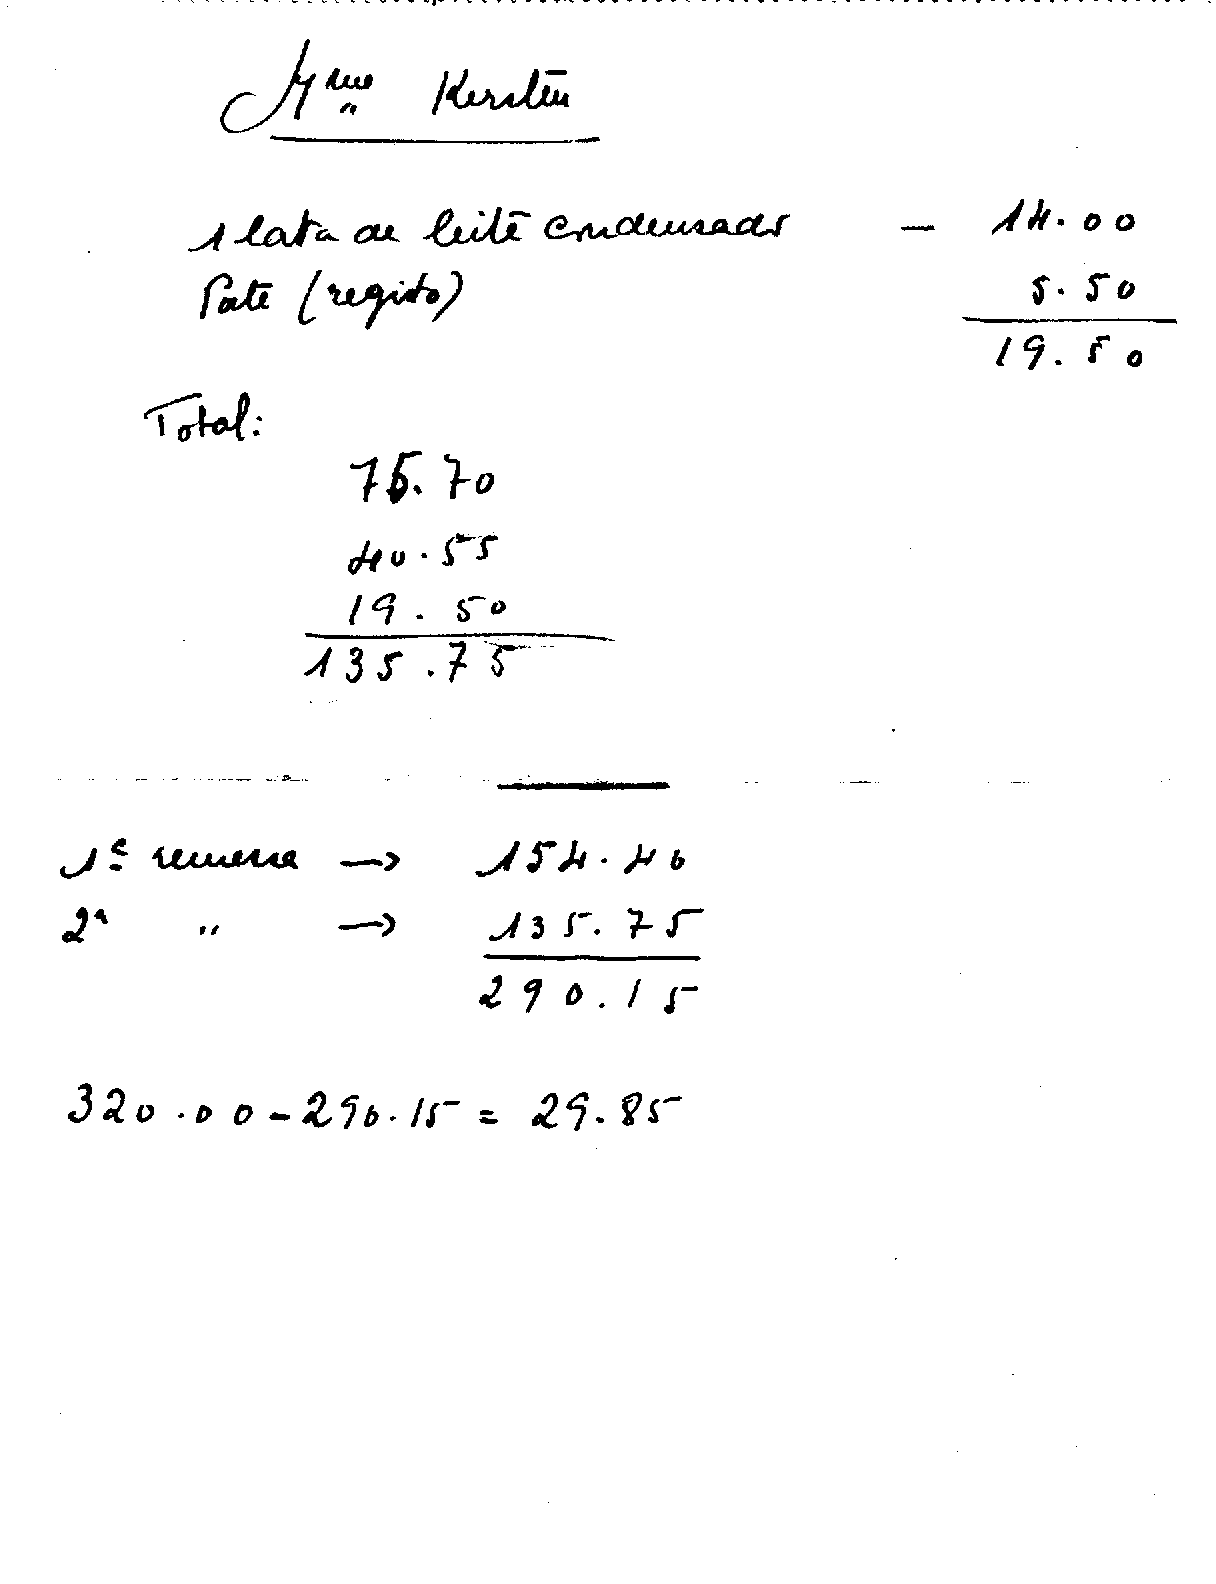 Mme Kersten
1 lata de leite condensado — 14.00
Porte (registo) 5.50
19.50
Total:
75.70
40.55
19.50
135.75
1ª remessa → 154.40
2ª " → 135.75
290.15
320.00 - 290.15 = 29.85